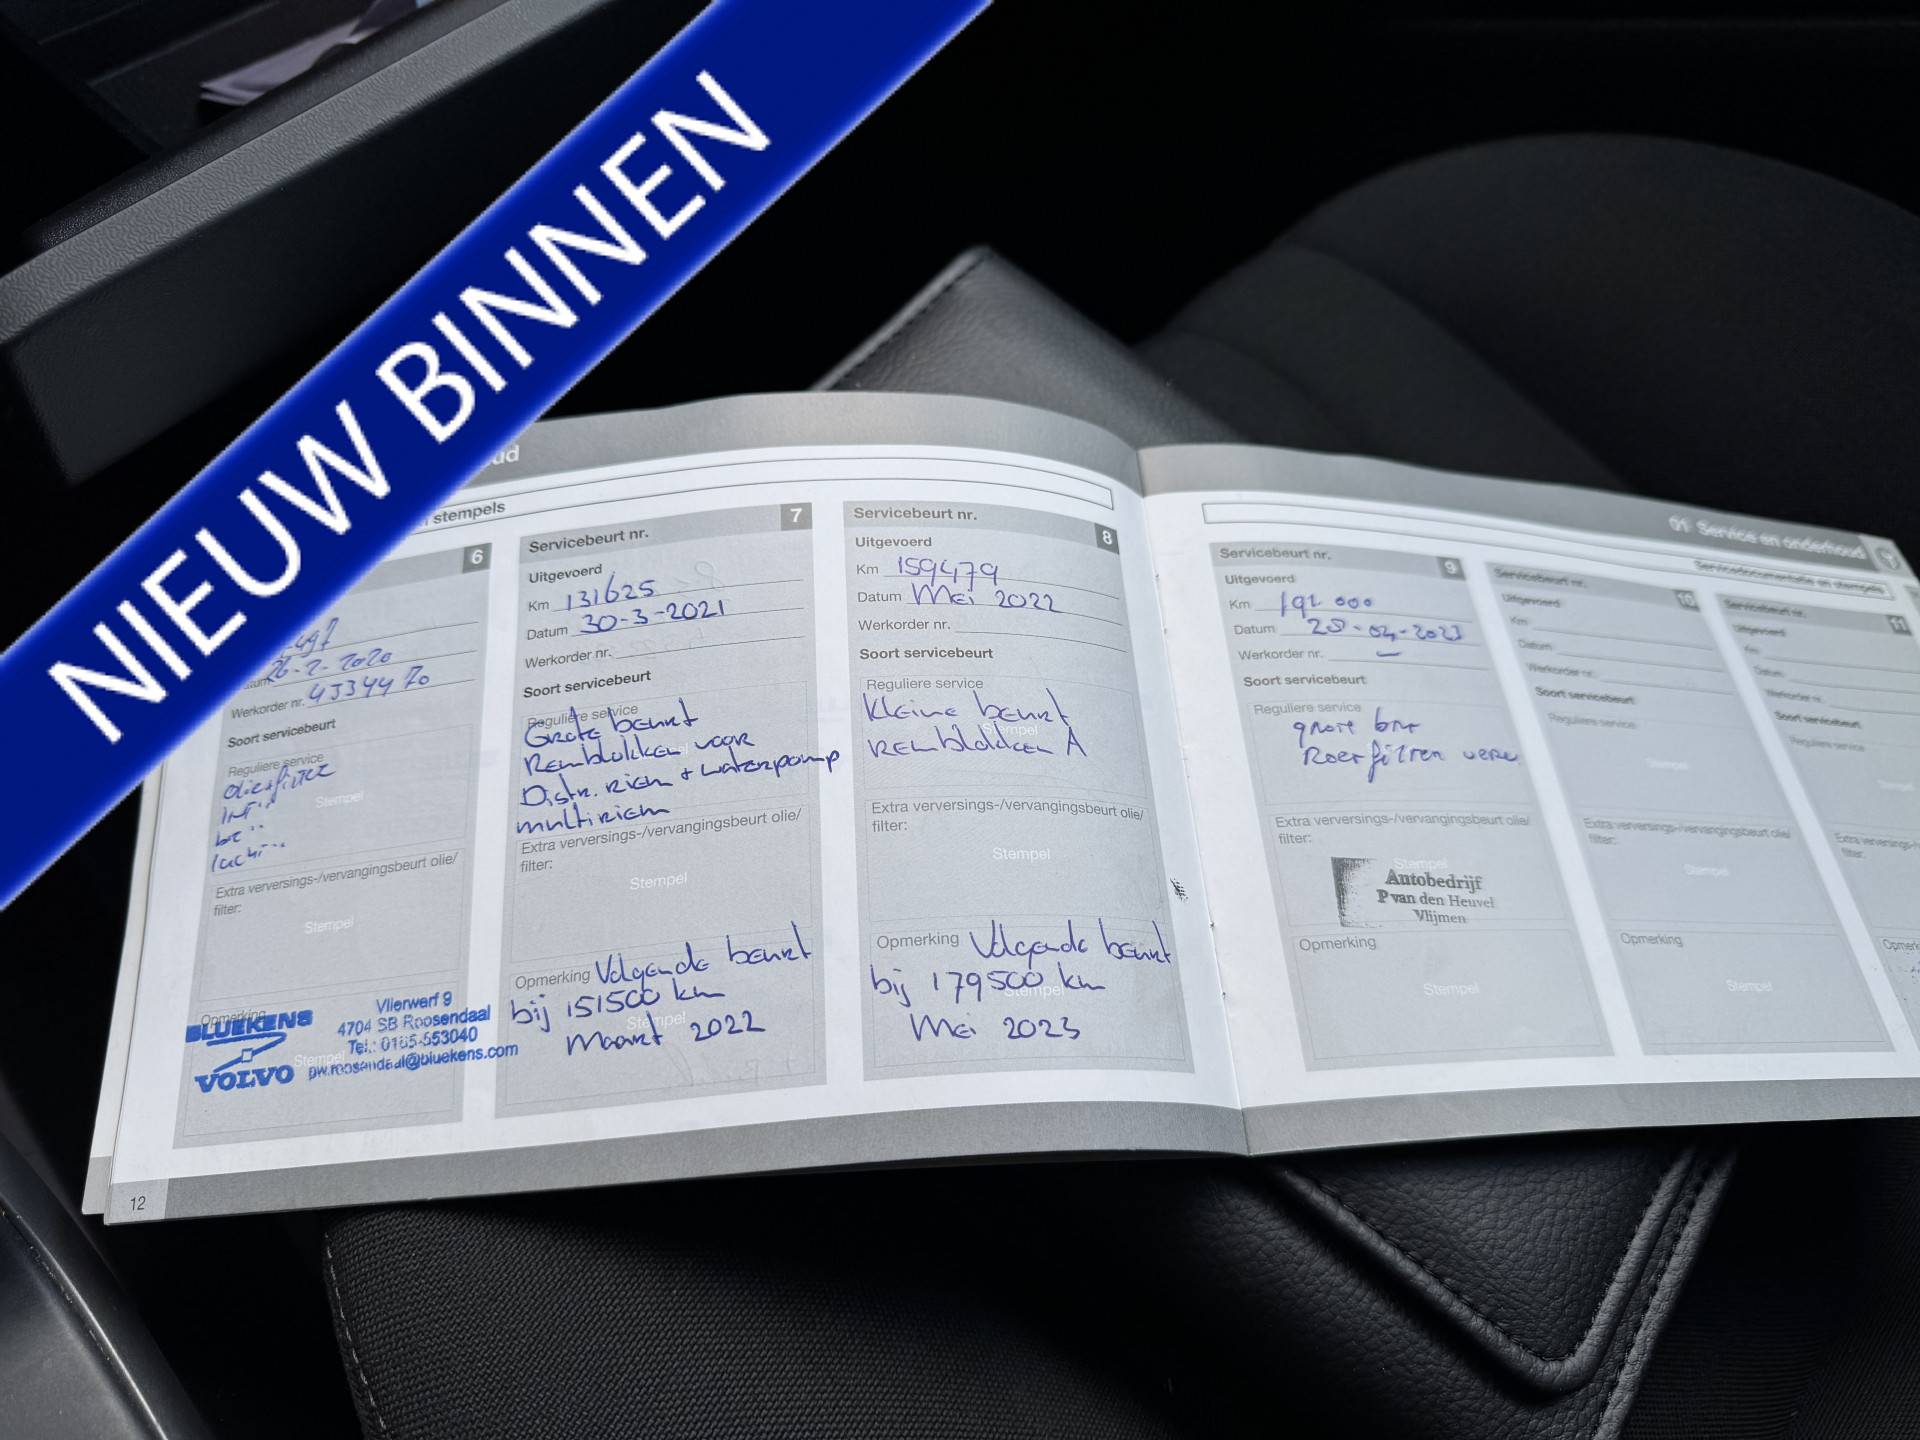 NIEUW BINNEN
stempels
6
26-2-2020
Werkorder nr.
Soort servicebeurt
Reguliere service
oliefilter
Stempel
Extra verversings-/vervangingsbeurt olie/
filter:
Stempel
Opmerking
Stempel
BLUEKENS
VOLVO
Vlierwerf 9
4704 SB Roosendaal
Tel.: 0165-553040
pw.roosendaal@bluekens.com
12
Servicebeurt nr. 7
Uitgevoerd
Km 131625
Datum 30-3-2021
Werkorder nr.
Soort servicebeurt
Reguliere service
Grote beurt
Remblokken voor
Distr. riem + waterpomp
multiriem
Extra verversings-/vervangingsbeurt olie/
filter:
Stempel
Opmerking Volgende beurt
bij 151500 km
Stempel
Maart 2022
Servicebeurt nr. 8
Uitgevoerd
Km 159479
Datum Mei 2022
Werkorder nr.
Soort servicebeurt
Reguliere service
Kleine beurt
Stempel
Remblokken A
Extra verversings-/vervangingsbeurt olie/
filter:
Stempel
Opmerking Volgende beurt
bij 179500 km
Stempel
Mei 2023
01 Service en onderhoud
Servicedocumentatie en stempels
Servicebeurt nr. 9
Uitgevoerd
Km 192 000
Datum
Werkorder nr. -
Soort servicebeurt
Reguliere service
grote
Extra verversings-/vervangingsbeurt olie/
filter:
Stempel
Autobedrijf
P van den Heuvel
Vlijmen
Opmerking
Stempel
Servicebeurt nr. 10
Uitgevoerd
Km
Datum
Werkorder nr.
Soort servicebeurt
Reguliere service
Stempel
Extra verversings-/vervangingsbeurt olie/
filter:
Stempel
Opmerking
Stempel
Servicebeurt nr. 11
Uitgevoerd
Km
Datum
Werkorder nr.
Soort servicebeurt
Reguliere service
filter: